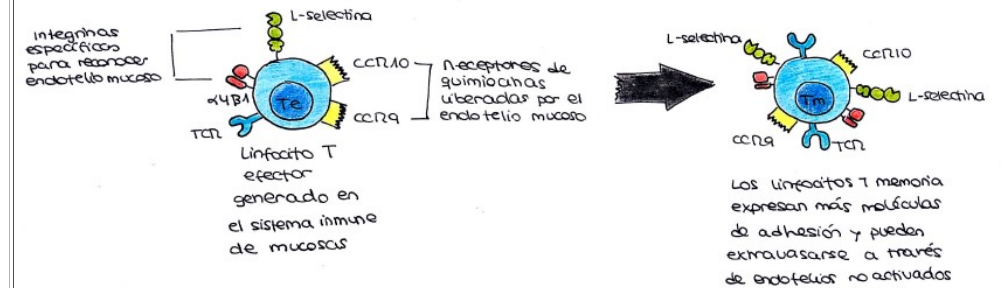 L-selectina
integrinas
específicas
para reconocer
endotelio mucoso
α4β1
TCR
Te
CCR10
CCR9
Receptores de
quimiocinas
liberadas por el
endotelio mucoso
Linfocito T
efector
generado en
el sistema inmune
de mucosas
L-selectina
CCR10
Tm
L-selectina
CCR9
TCR
Los linfocitos T memoria
expresan más moléculas
de adhesión y pueden
extravasarse a través
de endotelios no activados